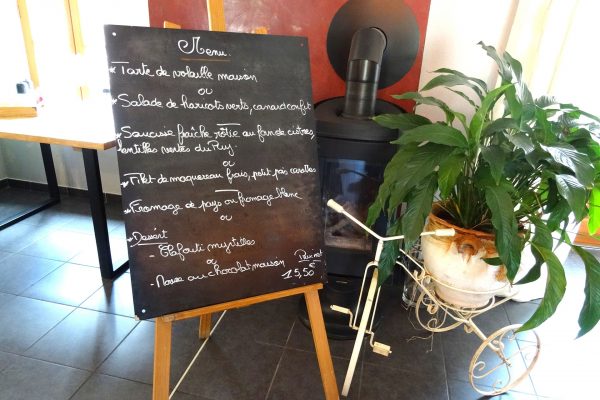 Menu
* Tarte de volaille maison
ou
* Salade de haricots verts, canard confit
* Saucisse fraîche rôtie au four de
lentilles vertes du Puy
ou
* Filet de maquereau frais, petit pois carottes
* Fromage de pays ou fromage blanc
ou
* Dessert
- Clafouti myrtilles
ou
- Mousse au chocolat maison
Prix net
15,50 €